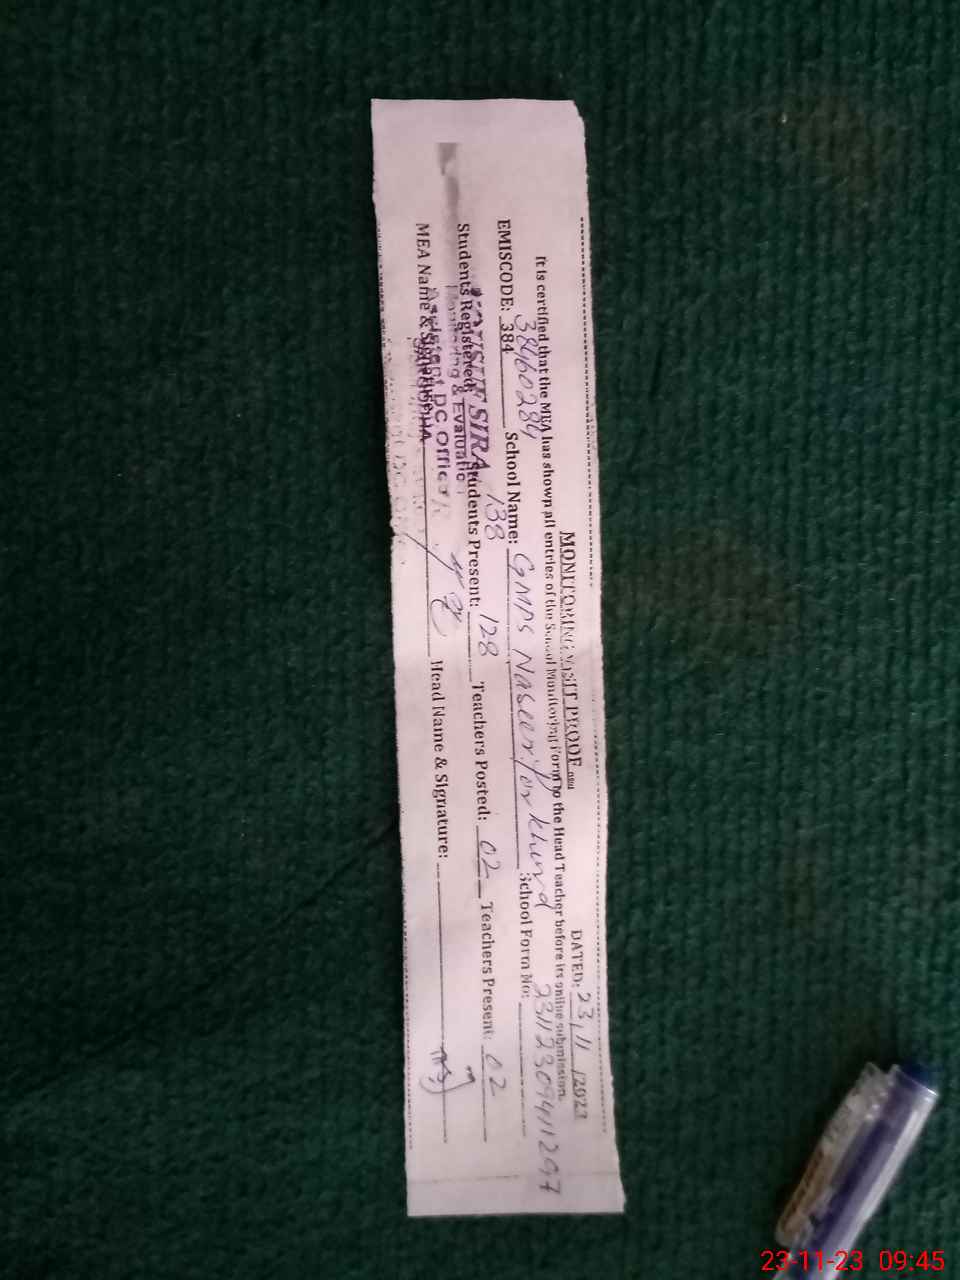 MONITORING VISIT PROOF
DATED: 23/11/2023
It is certified that the MEA has shown all entries of the School Monitoring Form to the Head Teacher before its online submission.
38460284
EMISCODE: 384 School Name: GMPS Naseerpor Khurd School Form No: 231123094111297
Students Registered: 138 Students Present: 128 Teachers Posted: 02 Teachers Present: 02
MEA Name & Signature: Head Name & Signature:
SIRA
Monitoring & Evaluation
Assistent DC Office
SARGODHA
23-11-23 09:45